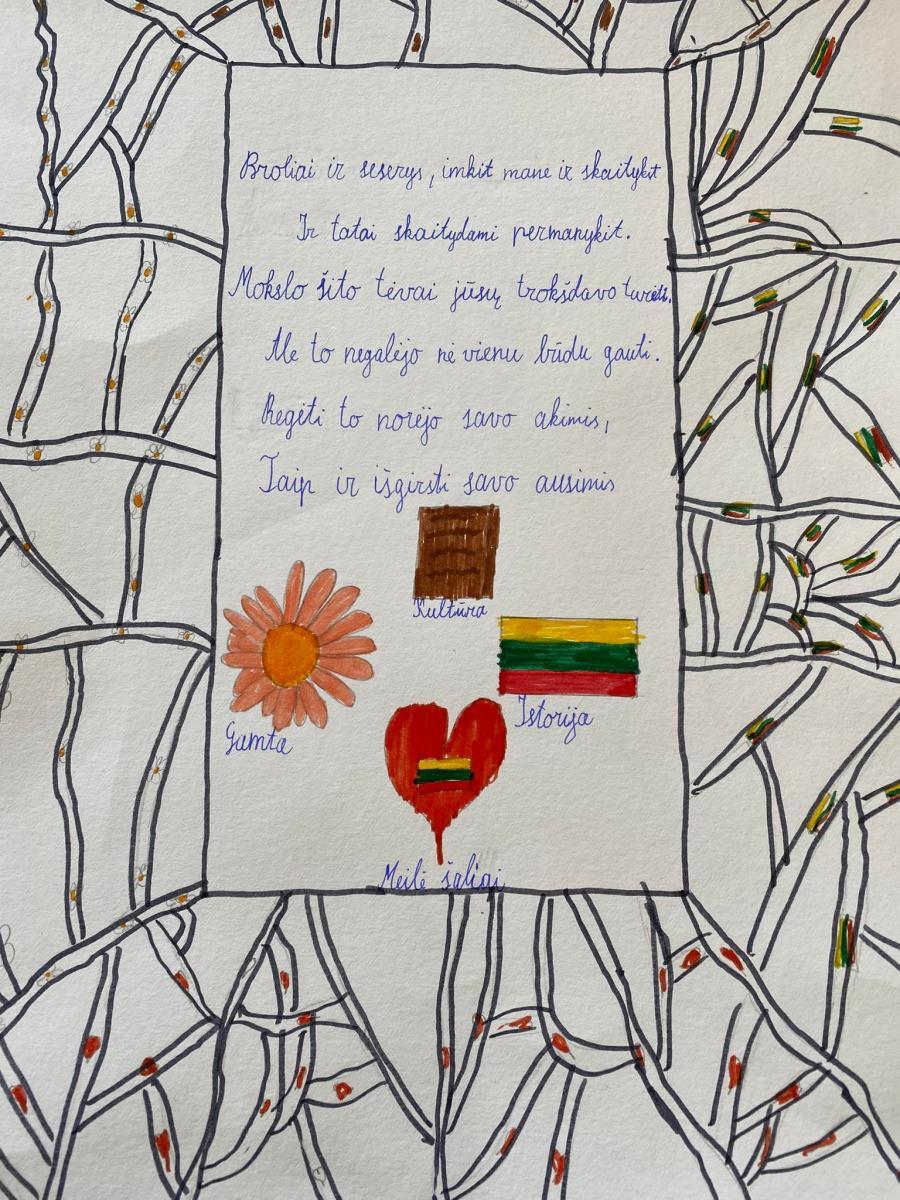 Broliai ir seserys, imkit mane ir skaitykit
Ir tatai skaitydami permanykit.
Mokslo šito tėvai jūsų trokšdavo turėti.
Ale to negalėjo nė vienu būdu gauti.
Regėti to norėjo savo akimis,
Taip ir išgirsti savo ausimis
Kultūra
Gamta
Istorija
Meilė šaliai